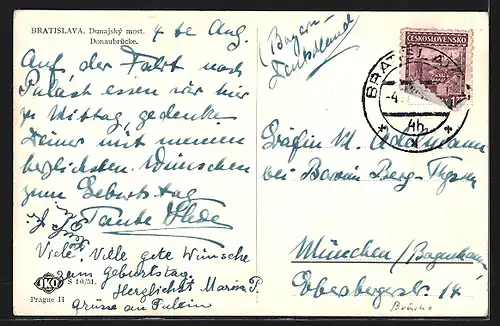 BRATISLAVA. Dunajský most.
Donaubrücke.
4 te Aug.
Auf der Fahrt nach
essen wir hier
zu Mittag, gedenke
Deiner mit meinen
herzlichsten Wünschen
zum Geburtstag
Tante
Viele, Ville gute Wünsche
zum Geburtstag.
Herzlichst Maria P.
Grüsse an
IKO
S 10/31.
Prague II
(Bayern
Deutschland
ČESKOSLOVENSKO
BRATISLAVA
4b
Gräfin M. Adelmann
bei Baronin Berg-
München/Bogenhausen
14